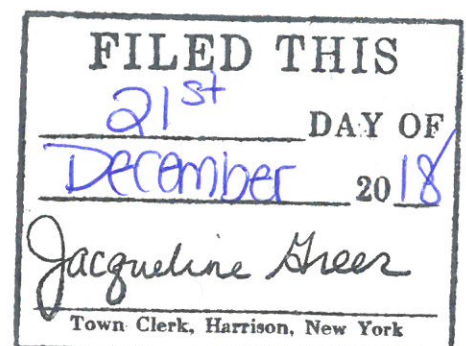 FILED THIS
21st DAY OF
December 2018
Jacqueline Greer
Town Clerk, Harrison, New York